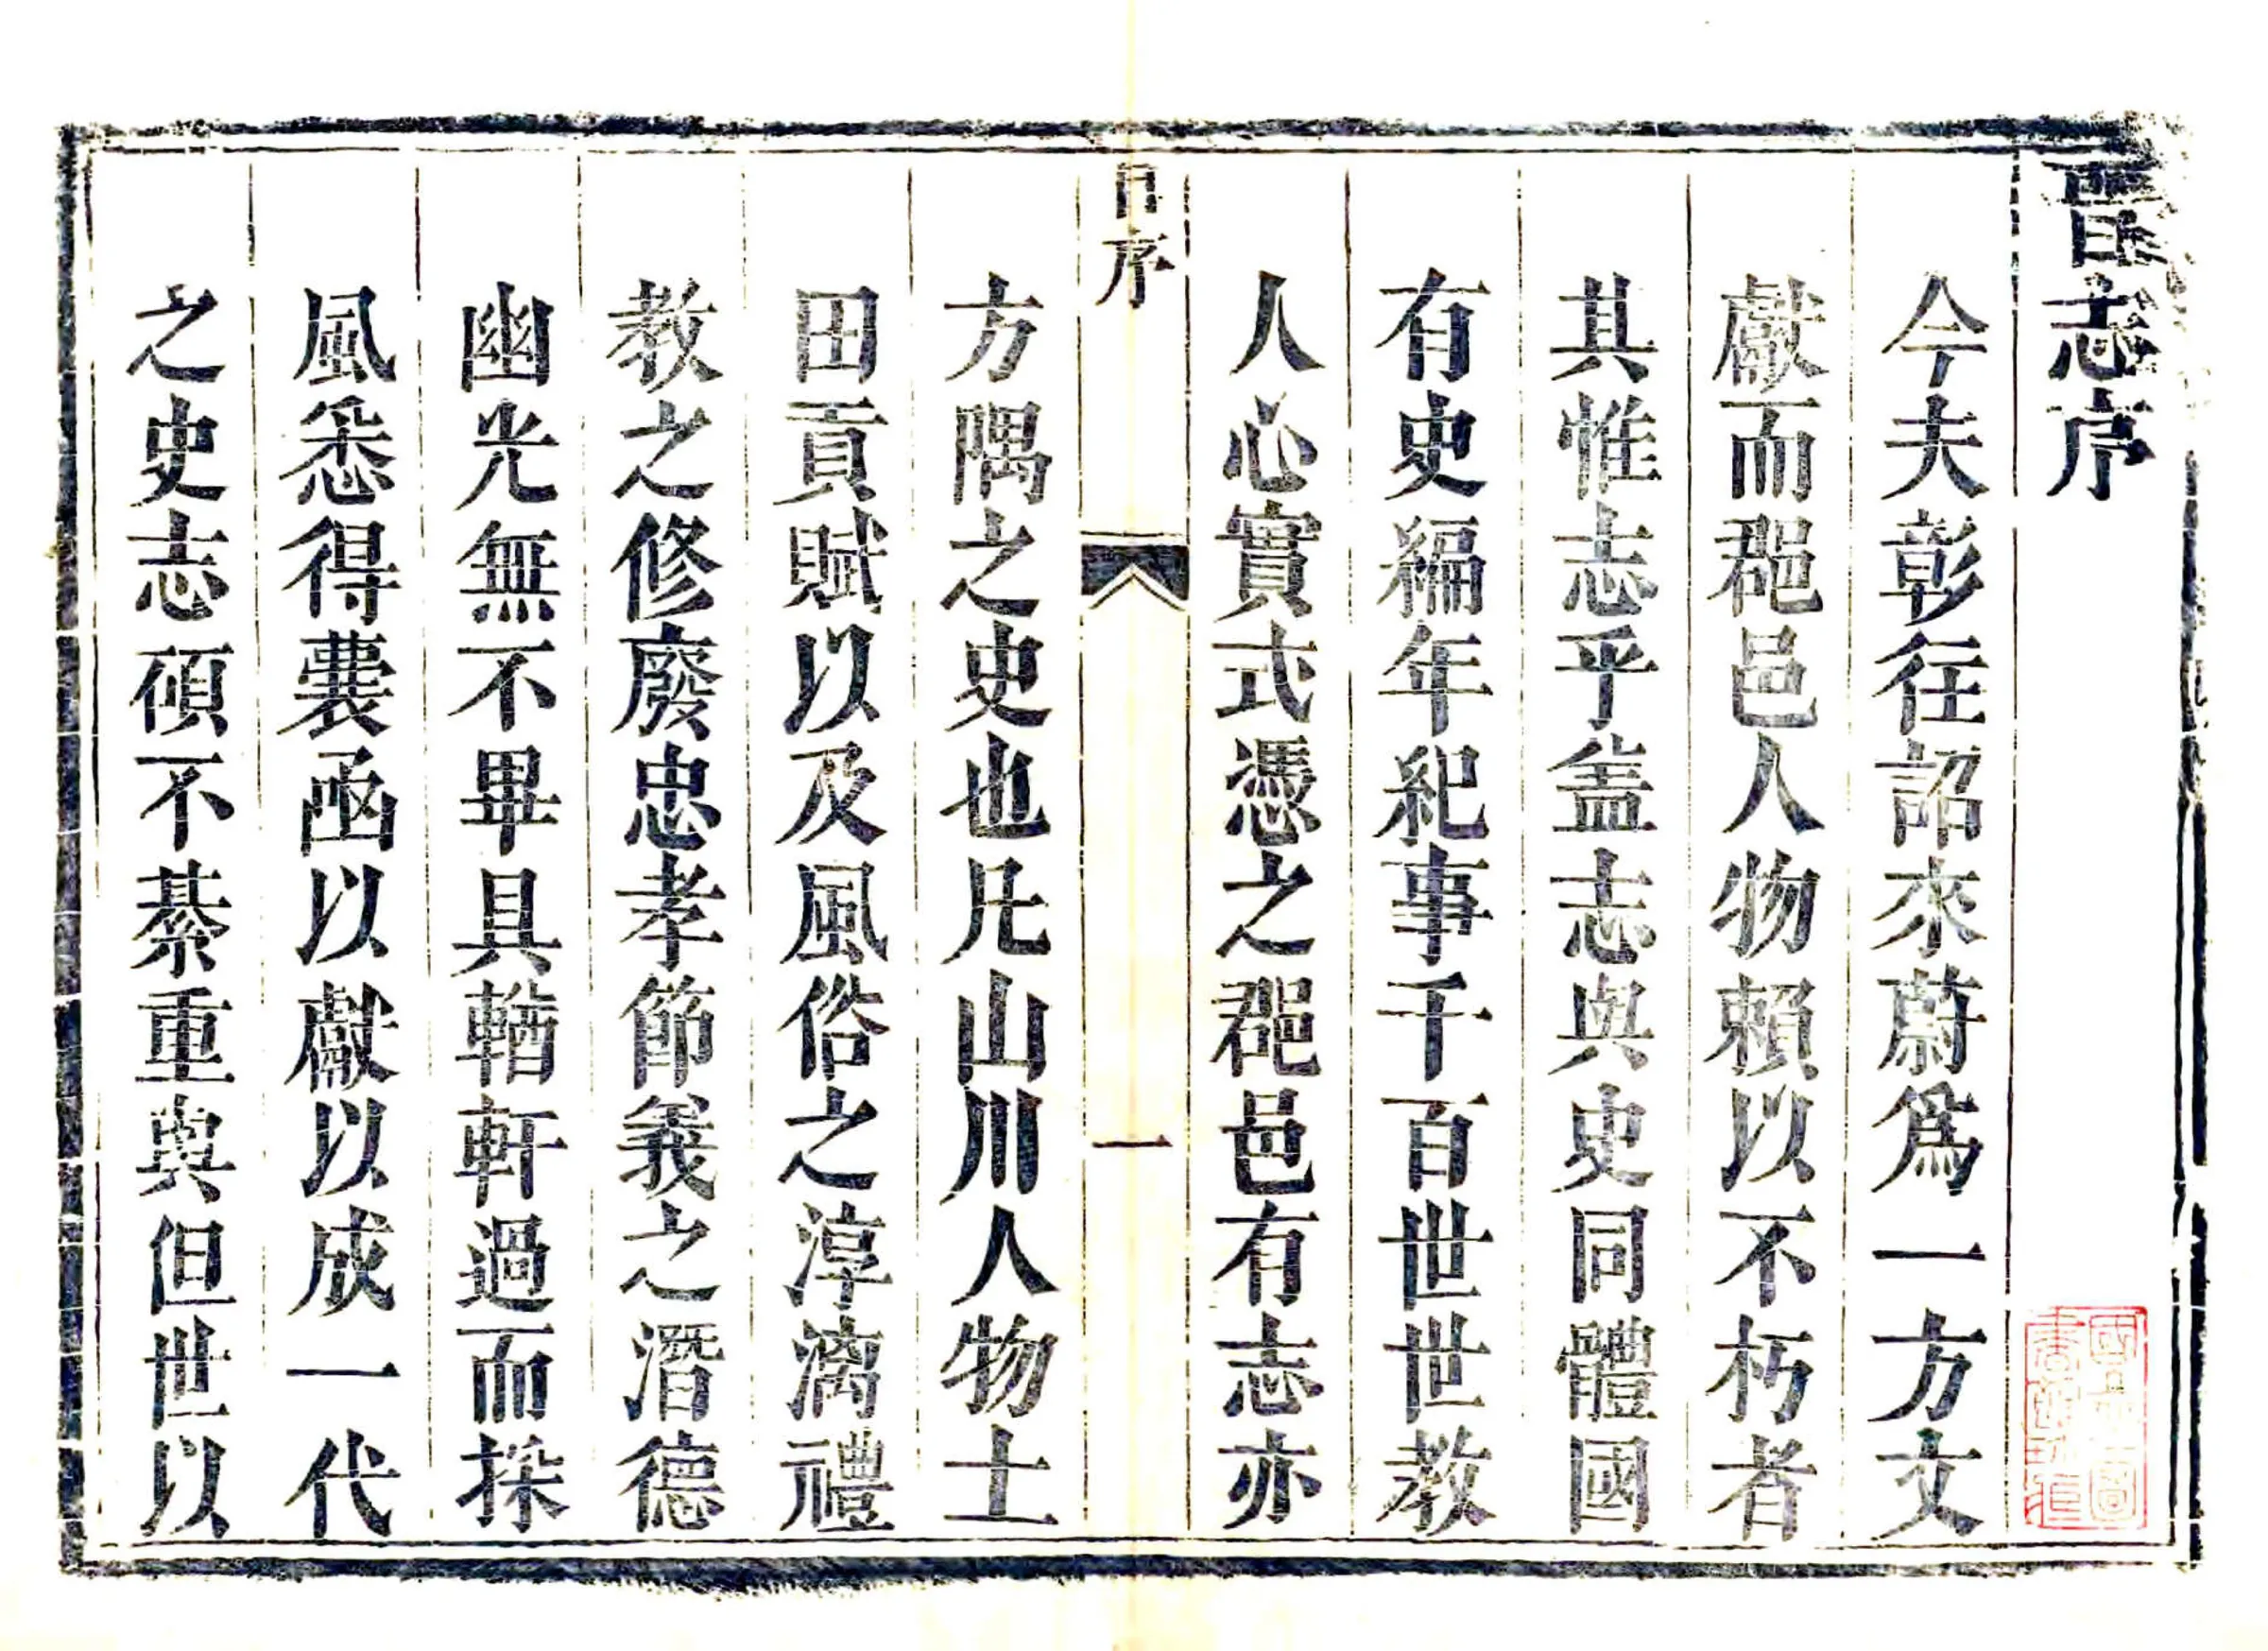 志序
今夫彰往詔來蔚爲一方文
獻而郡邑人物賴以不朽者
其惟志乎盖志與史同體國
有史編年紀事千百世世教
人心實式憑之郡邑有志亦
序
一
方隅之史也凡山川人物土
田貢賦以及風俗之淳漓禮
教之修廢忠孝節義之潛德
幽光無不畢具輶軒過而採
風悉得囊函以獻以成一代
之史志碩不綦重與但世以